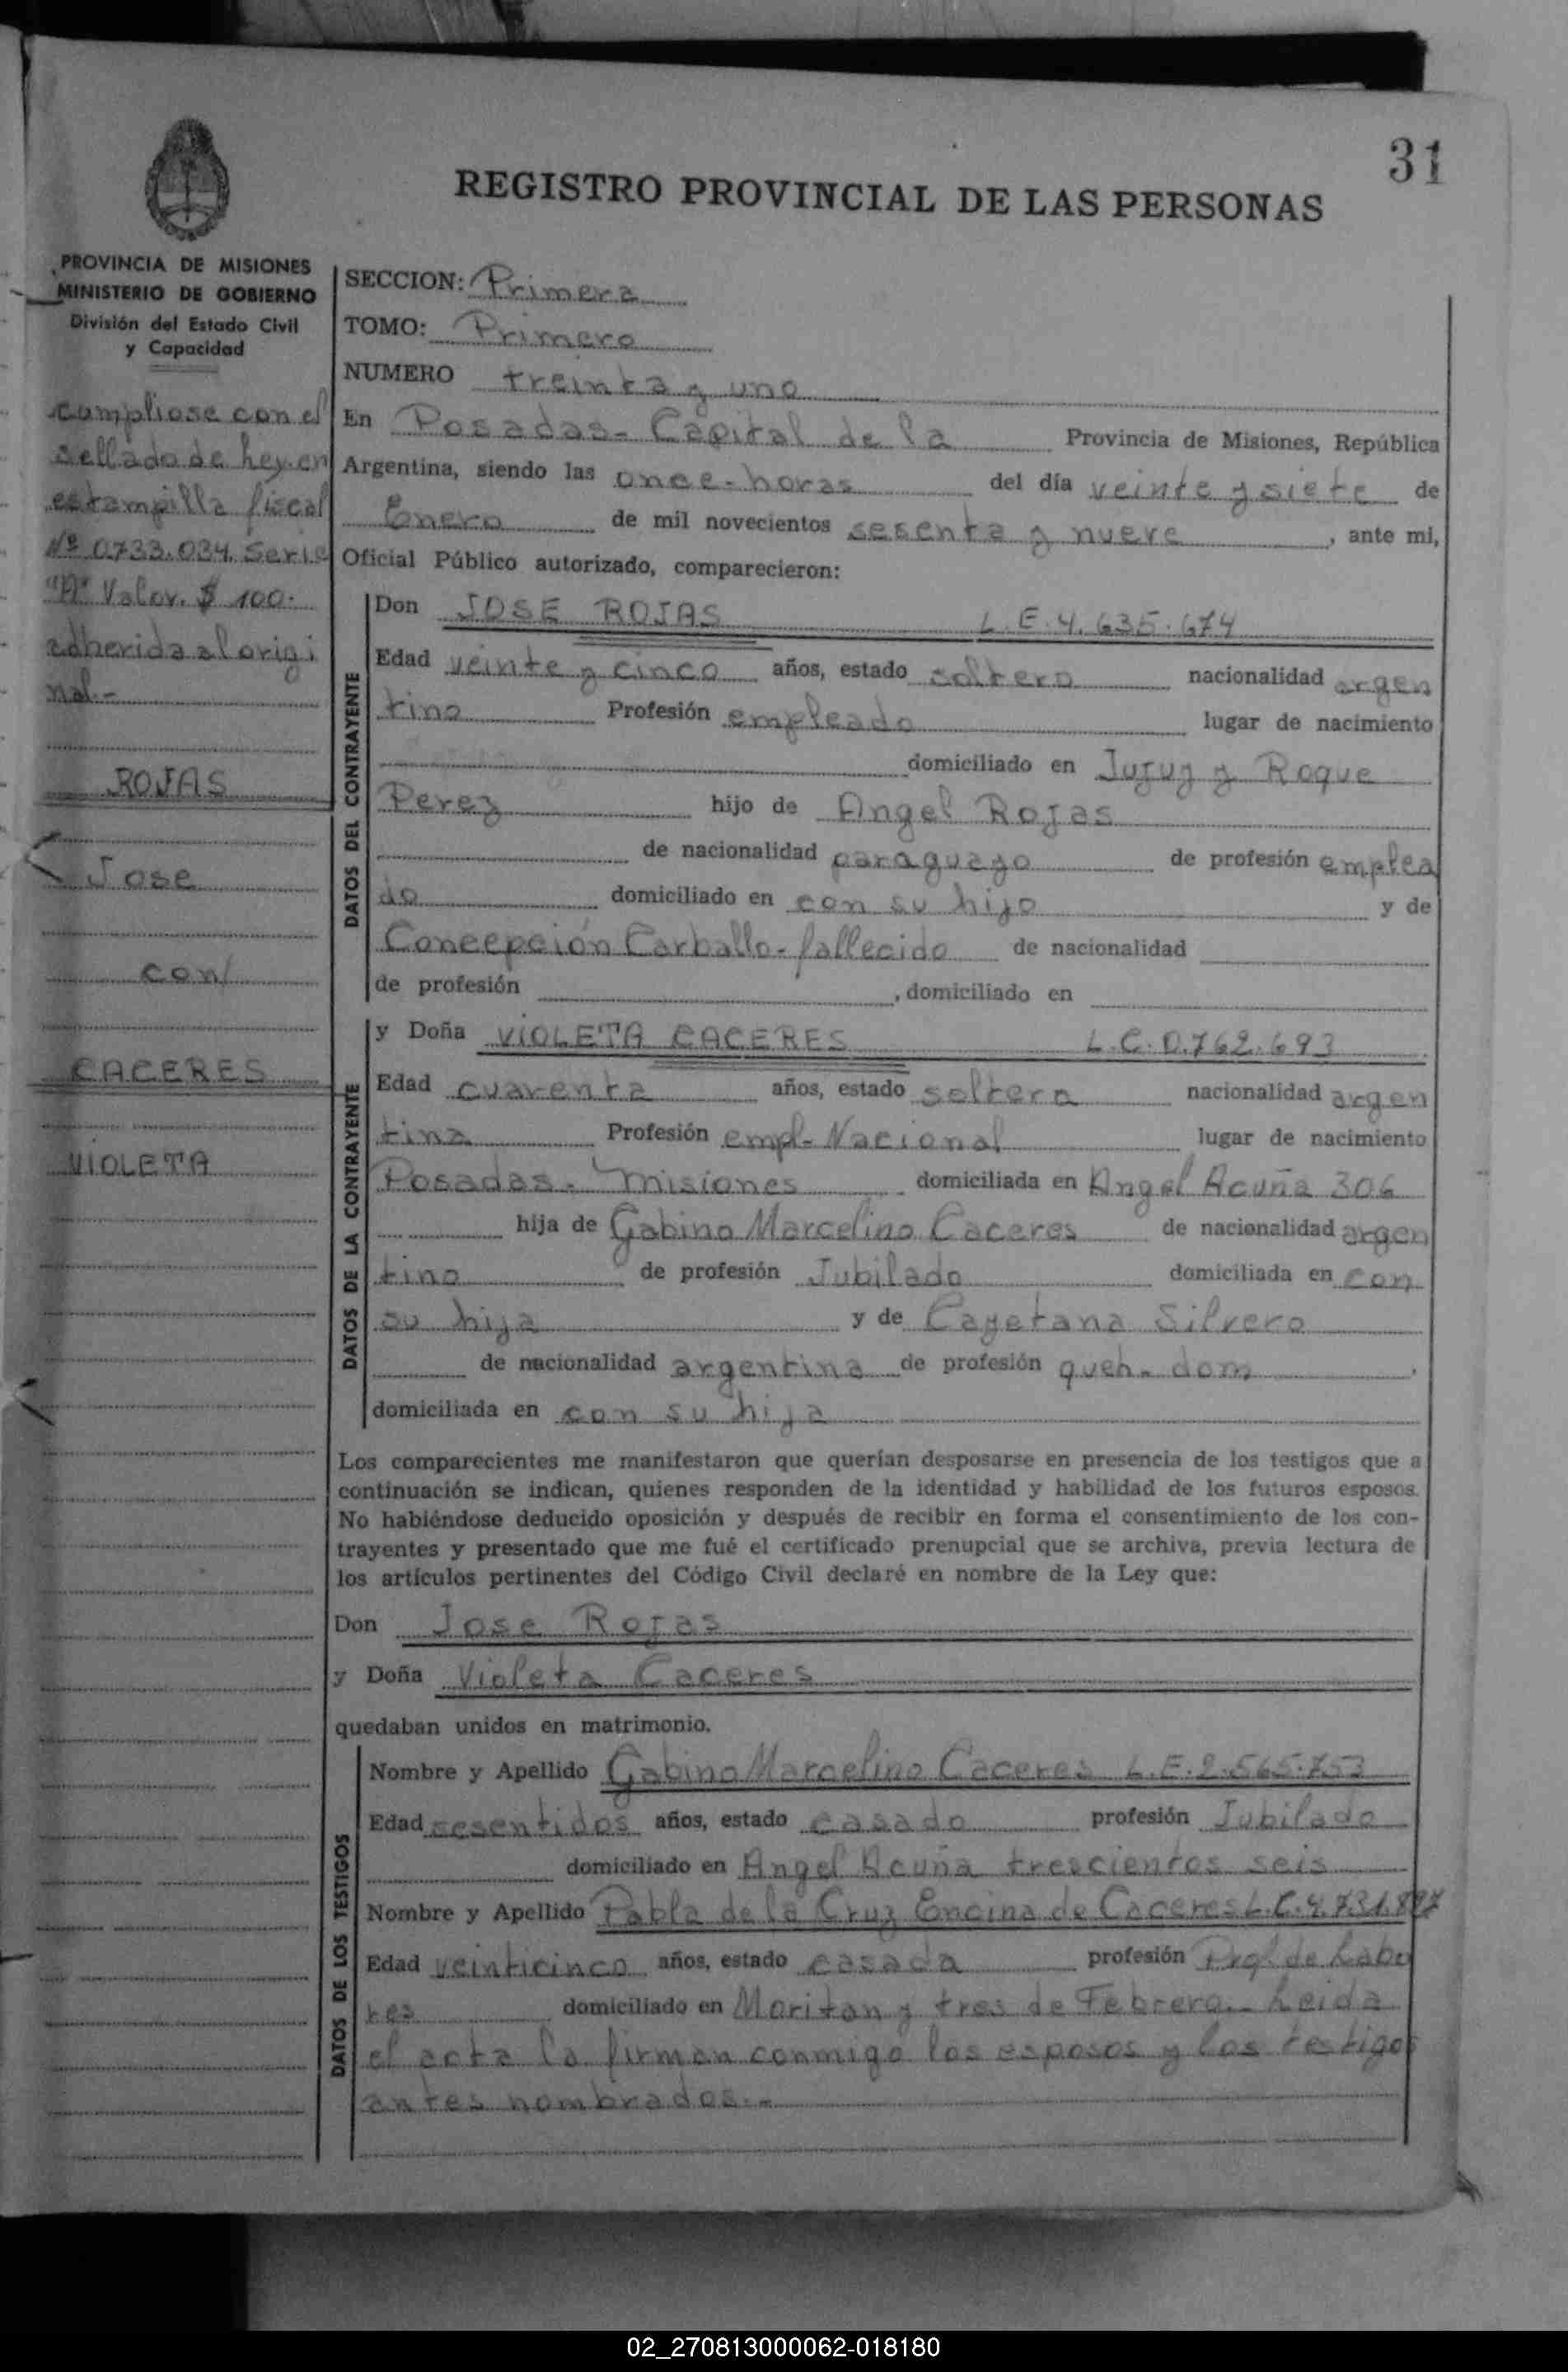 31
REGISTRO PROVINCIAL DE LAS PERSONAS
PROVINCIA DE MISIONES
MINISTERIO DE GOBIERNO
División del Estado Civil
y Capacidad
cumpliose con el
sellado de ley en
estampilla fiscal
Nº 0733.034. Serie
"A" Valor. $ 100.
adherida al origi
nal.-
ROJAS
Jose
con/
CACERES
VIOLETA
SECCION: Primera
TOMO: Primero
NUMERO treinta y uno
En Posadas- Capital de la Provincia de Misiones, República
Argentina, siendo las once-horas del día veinte y siete de
Enero de mil novecientos sesenta y nueve, ante mi,
Oficial Público autorizado, comparecieron:
DATOS DEL CONTRAYENTE
Don JOSE ROJAS L.E.4.635.674
Edad veinte y cinco años, estado soltero nacionalidad argen
tino Profesión empleado lugar de nacimiento
domiciliado en Jujuy y Roque
Perez hijo de Angel Rojas
de nacionalidad paraguayo de profesión emplea
do domiciliado en con su hijo y de
Concepción Carballo-fallecido de nacionalidad
de profesión , domiciliado en
DATOS DE LA CONTRAYENTE
y Doña VIOLETA CACERES L.C.0.762.693
Edad cuarenta años, estado soltera nacionalidad argen
tina Profesión empl-Nacional lugar de nacimiento
Posadas- Misiones domiciliada en Angel Acuña 306
hija de Gabino Marcelino Caceres de nacionalidad argen
tino de profesión Jubilado domiciliada en con
su hija y de Cayetana Silvero
de nacionalidad argentina de profesión queh-dom.
domiciliada en con su hija
Los comparecientes me manifestaron que querían desposarse en presencia de los testigos que a
continuación se indican, quienes responden de la identidad y habilidad de los futuros esposos.
No habiéndose deducido oposición y después de recibir en forma el consentimiento de los con-
trayentes y presentado que me fué el certificado prenupcial que se archiva, previa lectura de
los artículos pertinentes del Código Civil declaré en nombre de la Ley que:
Don Jose Rojas
y Doña Violeta Caceres
quedaban unidos en matrimonio.
DATOS DE LOS TESTIGOS
Nombre y Apellido Gabino Marcelino Caceres L.E.2.565.753
Edad sesentidos años, estado casado profesión Jubilado
domiciliado en Angel Acuña trescientos seis
Nombre y Apellido Pabla de la Cruz Encina de Caceres L.C.4.731.897
Edad veinticinco años, estado casada profesión Prof. de Labo
res domiciliado en Moritan y tres de Febrero.- Leida
el acta la firman conmigo los esposos y los testigos
antes nombrados.-
02_270813000062-018180